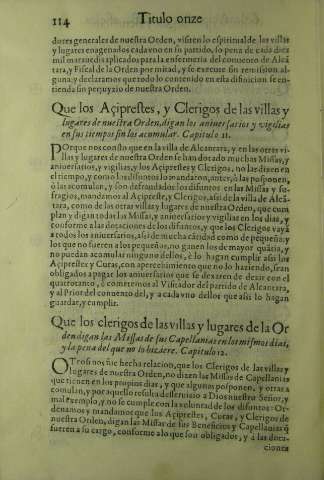 114 Titulo onze
dores generales de nuestra Orden, visiten lo espiritual de las villas
y lugares enagenados cada vno en su partido, so pena de cada diez
mil marauedis aplicados para la enfermeria del conuento de Alcã
tara, y Fiscal de la Orden por mitad, y se execute sin remission al
guna, y declaramos que todo lo contenido en esta difinicion se en-
tienda sin perjuyzio de nuestra Orden.
Que los Açiprestes, y Clerigos de las villas y
lugares de nuestra Orden, digan los aniuersarios y vigilias
en sus tiempos sin los acumular. Capitulo 11.
POrque nos consto que en la villa de Alcantara, y en las otras vi-
llas y lugares de nuestra Orden se han dotado muchas Missas, y
aniuersarios, y vigilias, y los Açiprestes y Clerigos, no las dizen en
el tiempo, y como los difuntos lo mandaron, antes, ò las posponen,
ò las acumulan, y son defraudados los difuntos en las Missas y su-
fragios, mandamos al Açipreste, y Clerigos, assi de la villa de Alcã
tara, como de las otras villas y lugares de nuestra Orden, que cum
plan y digan todas las Missas, y aniuersarios y vigilias en los dias, y
conforme a las dotaciones de los difuntos, y que los Clerigos vayã
a todos los aniuersarios, assi de mucha cãtidad como de pequeña; y
los que no fueren a los pequeños, no ganen los de mayor quãtia, y
no puedan acumular ninguno dellos, è lo hagan cumplir assi los
Açiprestes y Curas, con apercebimiento que no lo haziendo, seran
obligados a pagar los aniuersarios que se dexaren de dezir con el
quatrotanto, è cometemos al Visitador del partido de Alcantara,
y al Prior del conuento del, y a cada vno dellos que assi lo hagan
guardar, y cumplir.
Que los clerigos de las villas y lugares de la Or
den digan las Missas de sus Capellanias en los mismos dias,
y la pena del que no lo hiziere. Capitulo 12.
OTrosi nos fue hecha relacion, que los Clerigos de las villas y
lugares de nuestra Orden, no dizen las Missas de Capellanias
que tienen en los propios dias, y que algunas posponen, y otras a
cumulan, y por aquello resulta desseruicio a Dios nuestro Señor, y
mal exemplo, y no se cumple con la voluntad de los difuntos: Or-
denamos y mandamos que los Açiprestes, Curas, y Clerigos de
nuestra Orden, digan las Missas de sus Beneficios y Capellanias q̃
fueren a su cargo, conforme a lo que son obligados, y a las dota-
ciones